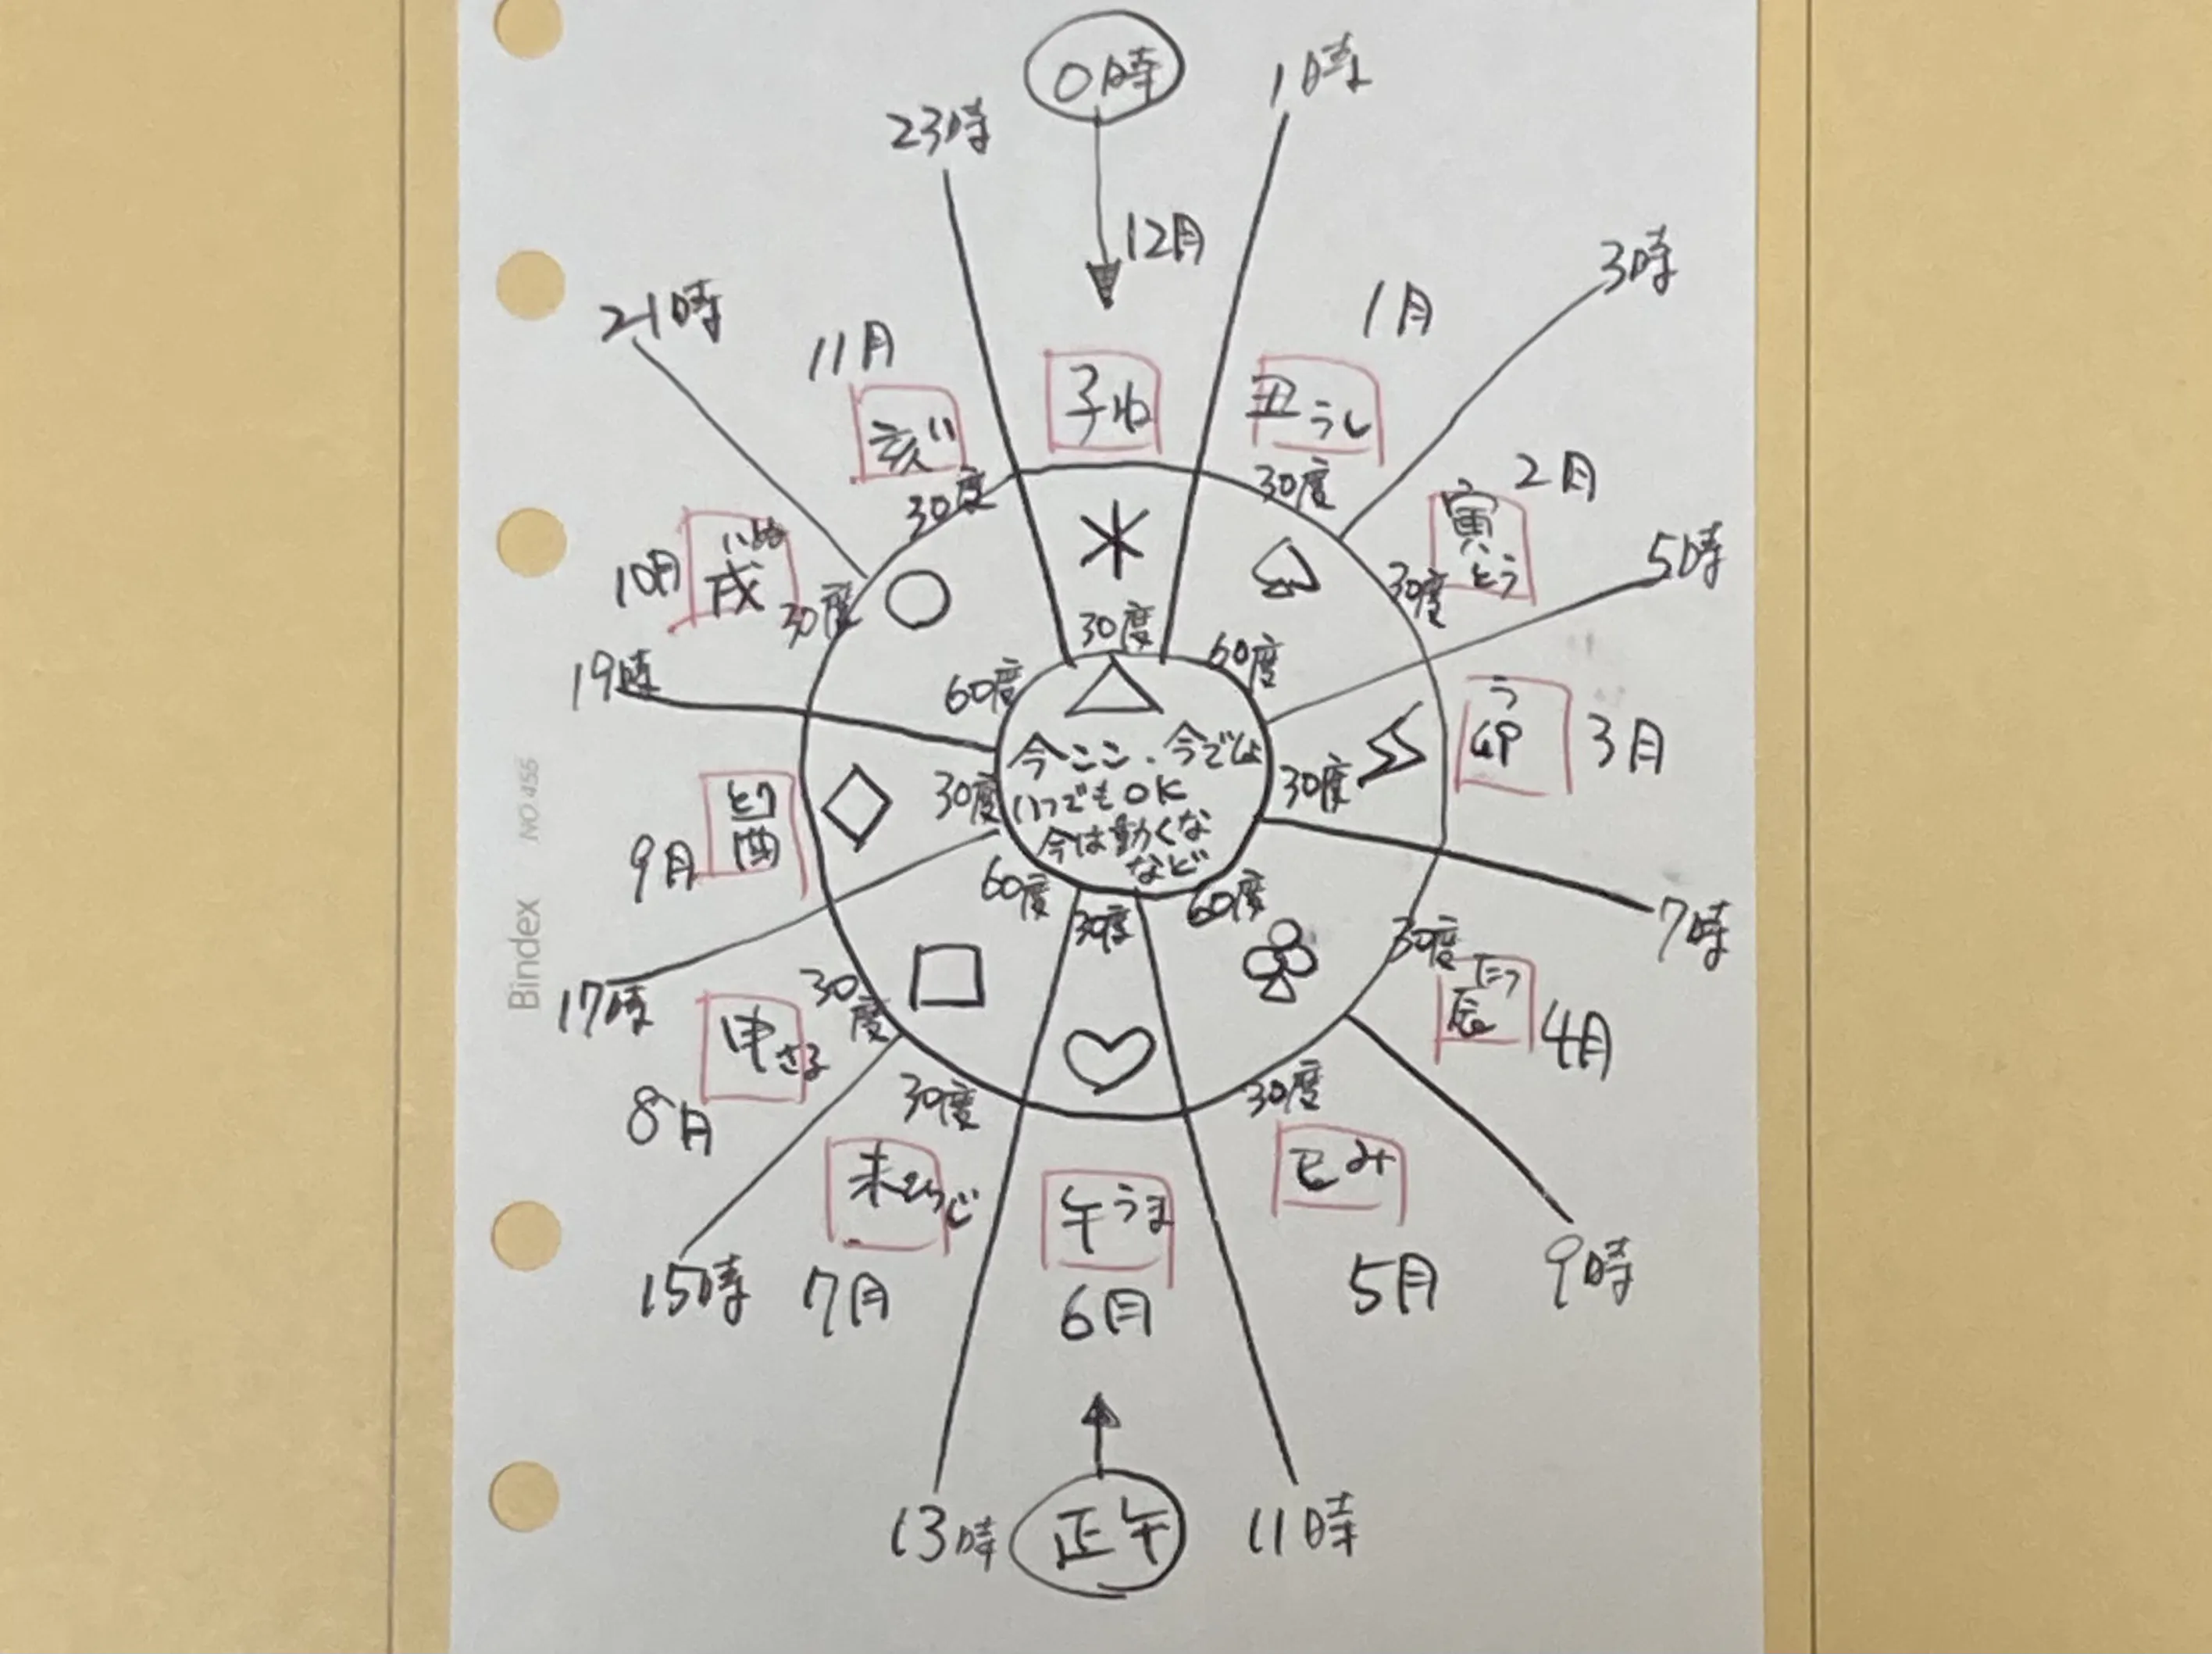 0時
1時
23時
12月
3時
21時
11月
1月
子ね
丑うし
亥い
2月
30度
30度
寅とら
5時
10月
いぬ
戌
30度
30度
30度
60度
19時
60度
う
卯
3月
今ココ・今でしょ
いつでもOK
今は動くな
など
30度
30度
とり
酉
9月
60度
30度
60度
7時
17時
30度
30度
たつ
辰
4月
申さる
8月
30度
30度
未ひつじ
午うま
巳み
15時
7月
6月
5月
9時
13時
正午
11時
Bindex NO.455